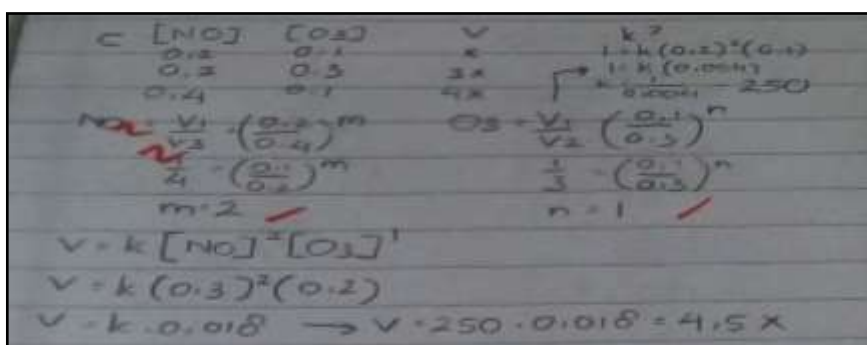 C [NO] [O3] V k?
0.2 0.1 x 1 = k(0.2)²(0.1)
0.2 0.3 3x 1 = k(0.004)
0.4 0.1 4x k = 1/0.004 = 250
NO = V1/V3 = (0.2/0.4)^m O3 = V1/V2 (0.1/0.3)^n
1/4 = (0.1/0.2)^m 1/3 = (0.1/0.3)^n
m = 2 n = 1
V = k [NO]² [O3]¹
V = k (0.3)² (0.2)
V = k . 0.018 → V = 250 . 0.018 = 4.5 x